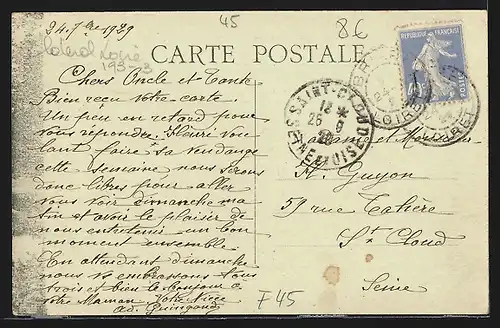 24 7bre 1929
45
8€
193-3
CARTE POSTALE
REPUBLIQUE FRANÇAISE
Chers Oncle et Tante
Bien reçu votre carte.
Un peu en retard pour
vous répondre. Fleuri vou
lant faire sa vendange
cette semaine nous serons
donc libres pour aller
vous voir dimanche ma
tin et avoir le plaisir de
nous entretenir un bon
moment ensemble.
En attendant dimanche
nous vous embrassons tous
trois et bien le bonjour à
votre Maman Votre Nièce
Ad. Guingand
SAINT-CLOUD
18 *
26 9
29
SEINE ET OISE
LOIRET
et Monsieur
H. Guyon
59 rue Tahère
St Cloud
Seine
F45